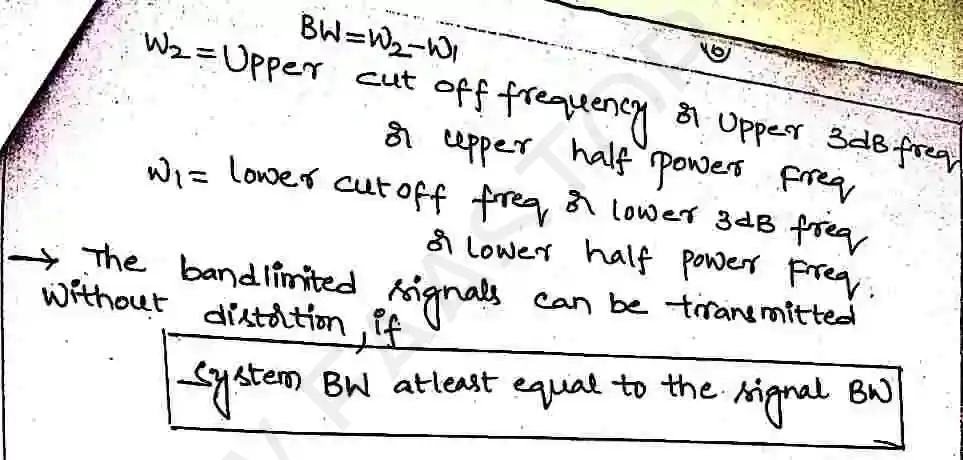 BW=W2-W1
W2=Upper cut off frequency or Upper 3dB freq
or upper half power freq
W1= lower cut off freq or lower 3dB freq
or lower half power freq.
→ The bandlimited signals can be transmitted
without distortion, if
System BW atleast equal to the signal BW